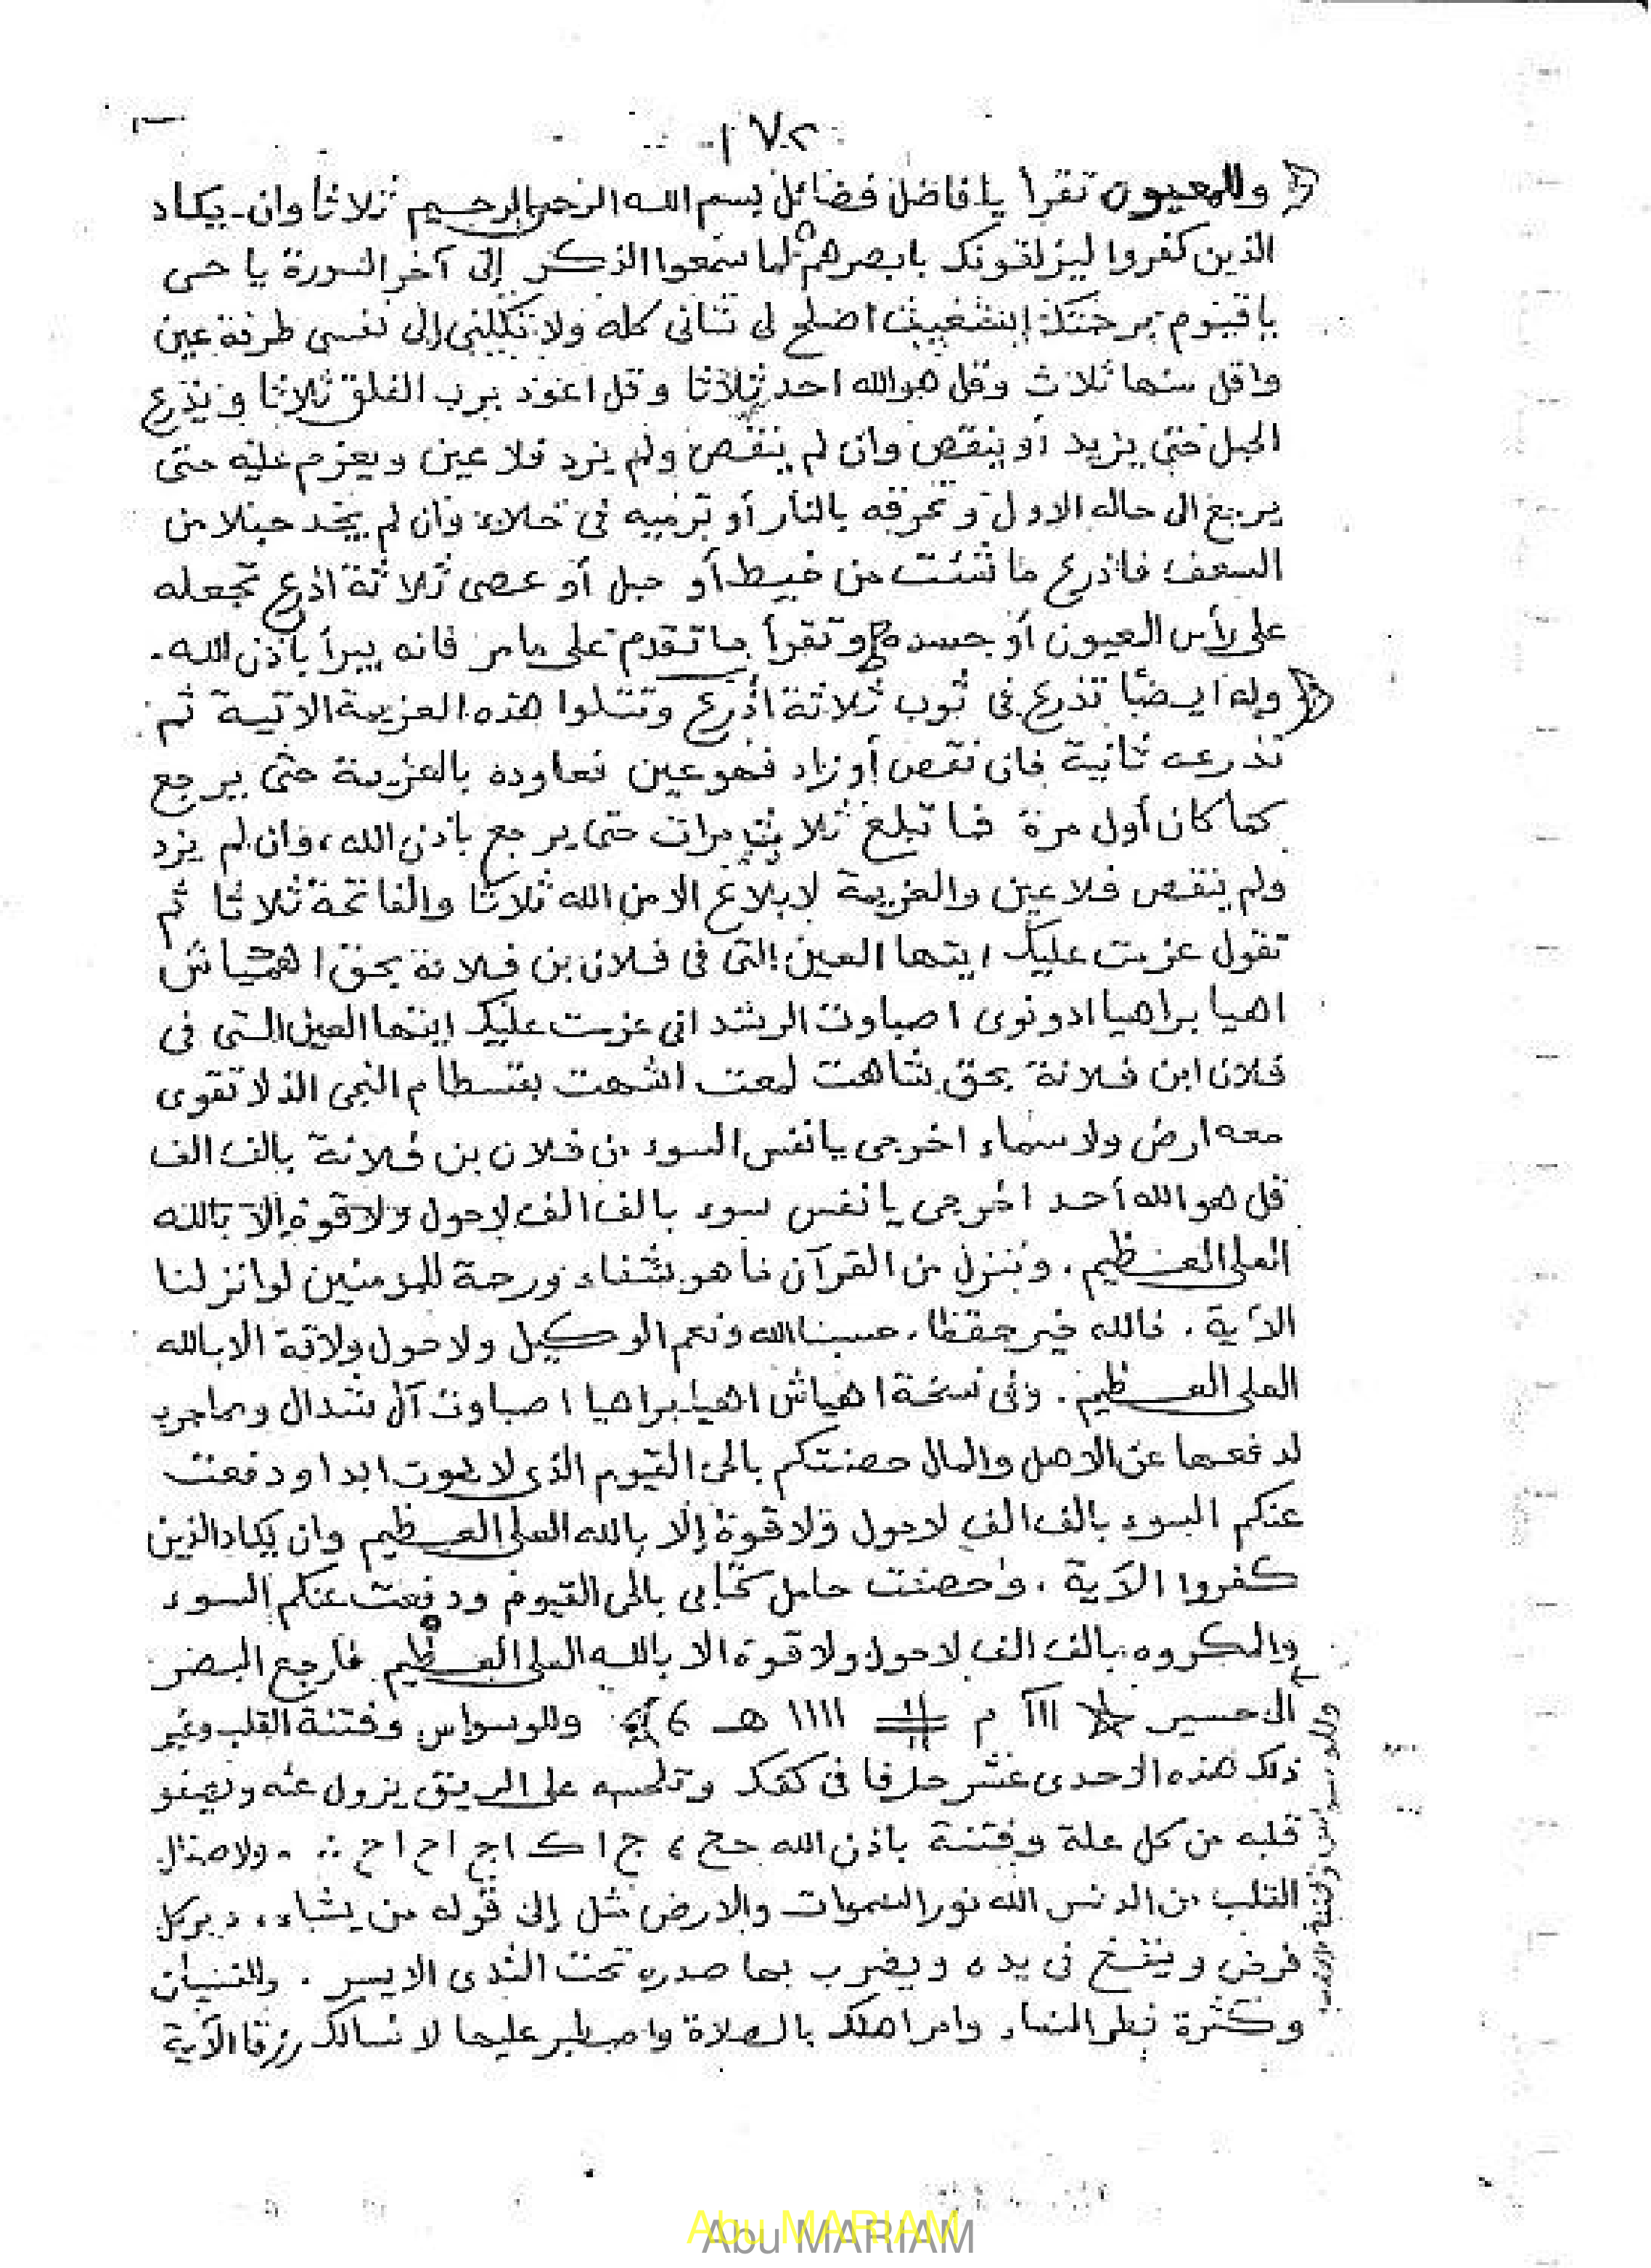 ١٧٢
وللمعيون تقرأ يا فاضل فضائل بسم الله الرحمن الرحيم ثلاثا وان يكاد
الذين كفروا ليزلقونك بابصرهم لما سمعوا الذكر إلى آخر السورة يا حى
يا قيوم برحمتك استغيث اصلح لى شانى كله ولا تكلنى إلى نفسى طرفة عين
واقل منها ثلاث وقل هو الله احد ثلاثا وقل اعوذ برب الفلق ثلاثا ويذرع
الحبل حتى يزيد أو ينقص وان لم ينقص ولم يزد فلا عين ويعزم عليه حتى
يرجع الى حاله الاول وتحرقه بالنار أو ترميه فى خلاء وان لم يجد حبلا من
السعف فاذرع ما شئت من خيط أو حبل أو عصى ثلاثة اذرع تجعله
على رأس العيون أو جسده وتقرأ ما تقدم على مامر فانه يبرأ باذن الله .
وله ايضا تذرع فى ثوب ثلاثة أذرع وتتلوا هذه العزيمة الاتية ثم
تذرعه ثانية فان نقص أو زاد فهو عين فعاوده بالعزيمة حتى يرجع
كما كان أول مرة فما تبلغ ثلاث مرات حتى يرجع باذن الله ، وان لم يزد
ولم ينقص فلا عين والعزيمة لابلاغ الا من الله ثلاثا والفاتحة ثلاثا ثم
تقول عزمت عليك ايتها العين التى فى فلان بن فلانة بحق اهمياش
اهيا براهيا ادونوى اصباوت الرشد انى عزمت عليك ايتها العين التى فى
فلان ابن فلانة بحق شاهت لمعت اشهت بقسطام النجى الذ لا تقوى
معه ارض ولا سماء اخرجى يا نفس السوء من فلان بن فلانة بالف الف
قل هو الله أحد اخرجى يا نفس سوء بالف الف لاحول ولا قوة إلا بالله
العلى العظيم . وننزل من القرآن ما هو شفاء ورحمة للمومنين لو انزلنا
الآية . فالله خير حفظا . حسبنا الله ونعم الوكيل ولا حول ولاقة الا بالله
العلى العظيم . وفى نسخة اهياش اهيا براهيا اصباوت آل شدال ومماجرب
لدفعها عن الاهل والمال حصنتكم بالحى القيوم الذى لا يموت ابدا ودفعت
عنكم السوء بالف الف لاحول ولا قوة إلا بالله العلى العظيم وان يكاد الذين
كفروا الآية . وحصنت حامل كتابى بالحى القيوم ودفعت عنكم السوء
والمكروه بالف الف لاحول ولا قوة الا بالله العلى العظيم فارجع البصر
الى حسير ☆ ااا م # ١١١١ هـ 6 وللوسواس وفتنة القلب وغير
ذلك هذه الاحدى عشر حرفا فى كفك وتلحسه على الريق يزول عنه ويصفو
قلبه من كل علة وفتنة باذن الله حح ، ج ا ك اج اح اح . ولاصتال
القلب من الدنس الله نور السموات والارض مثل إلى قوله من يشاء ، دبر كل
فرض وينفخ فى يده ويضرب بها صدره تحت الثدى الايسر . وللنسيان
وكثرة نظر النساء وامر اهلك بالصلاة واصطبر عليها لا نسالك رزقا الآية
وللوسواس وفتنة القلب
Abu MARIAM
Abu MARIAM